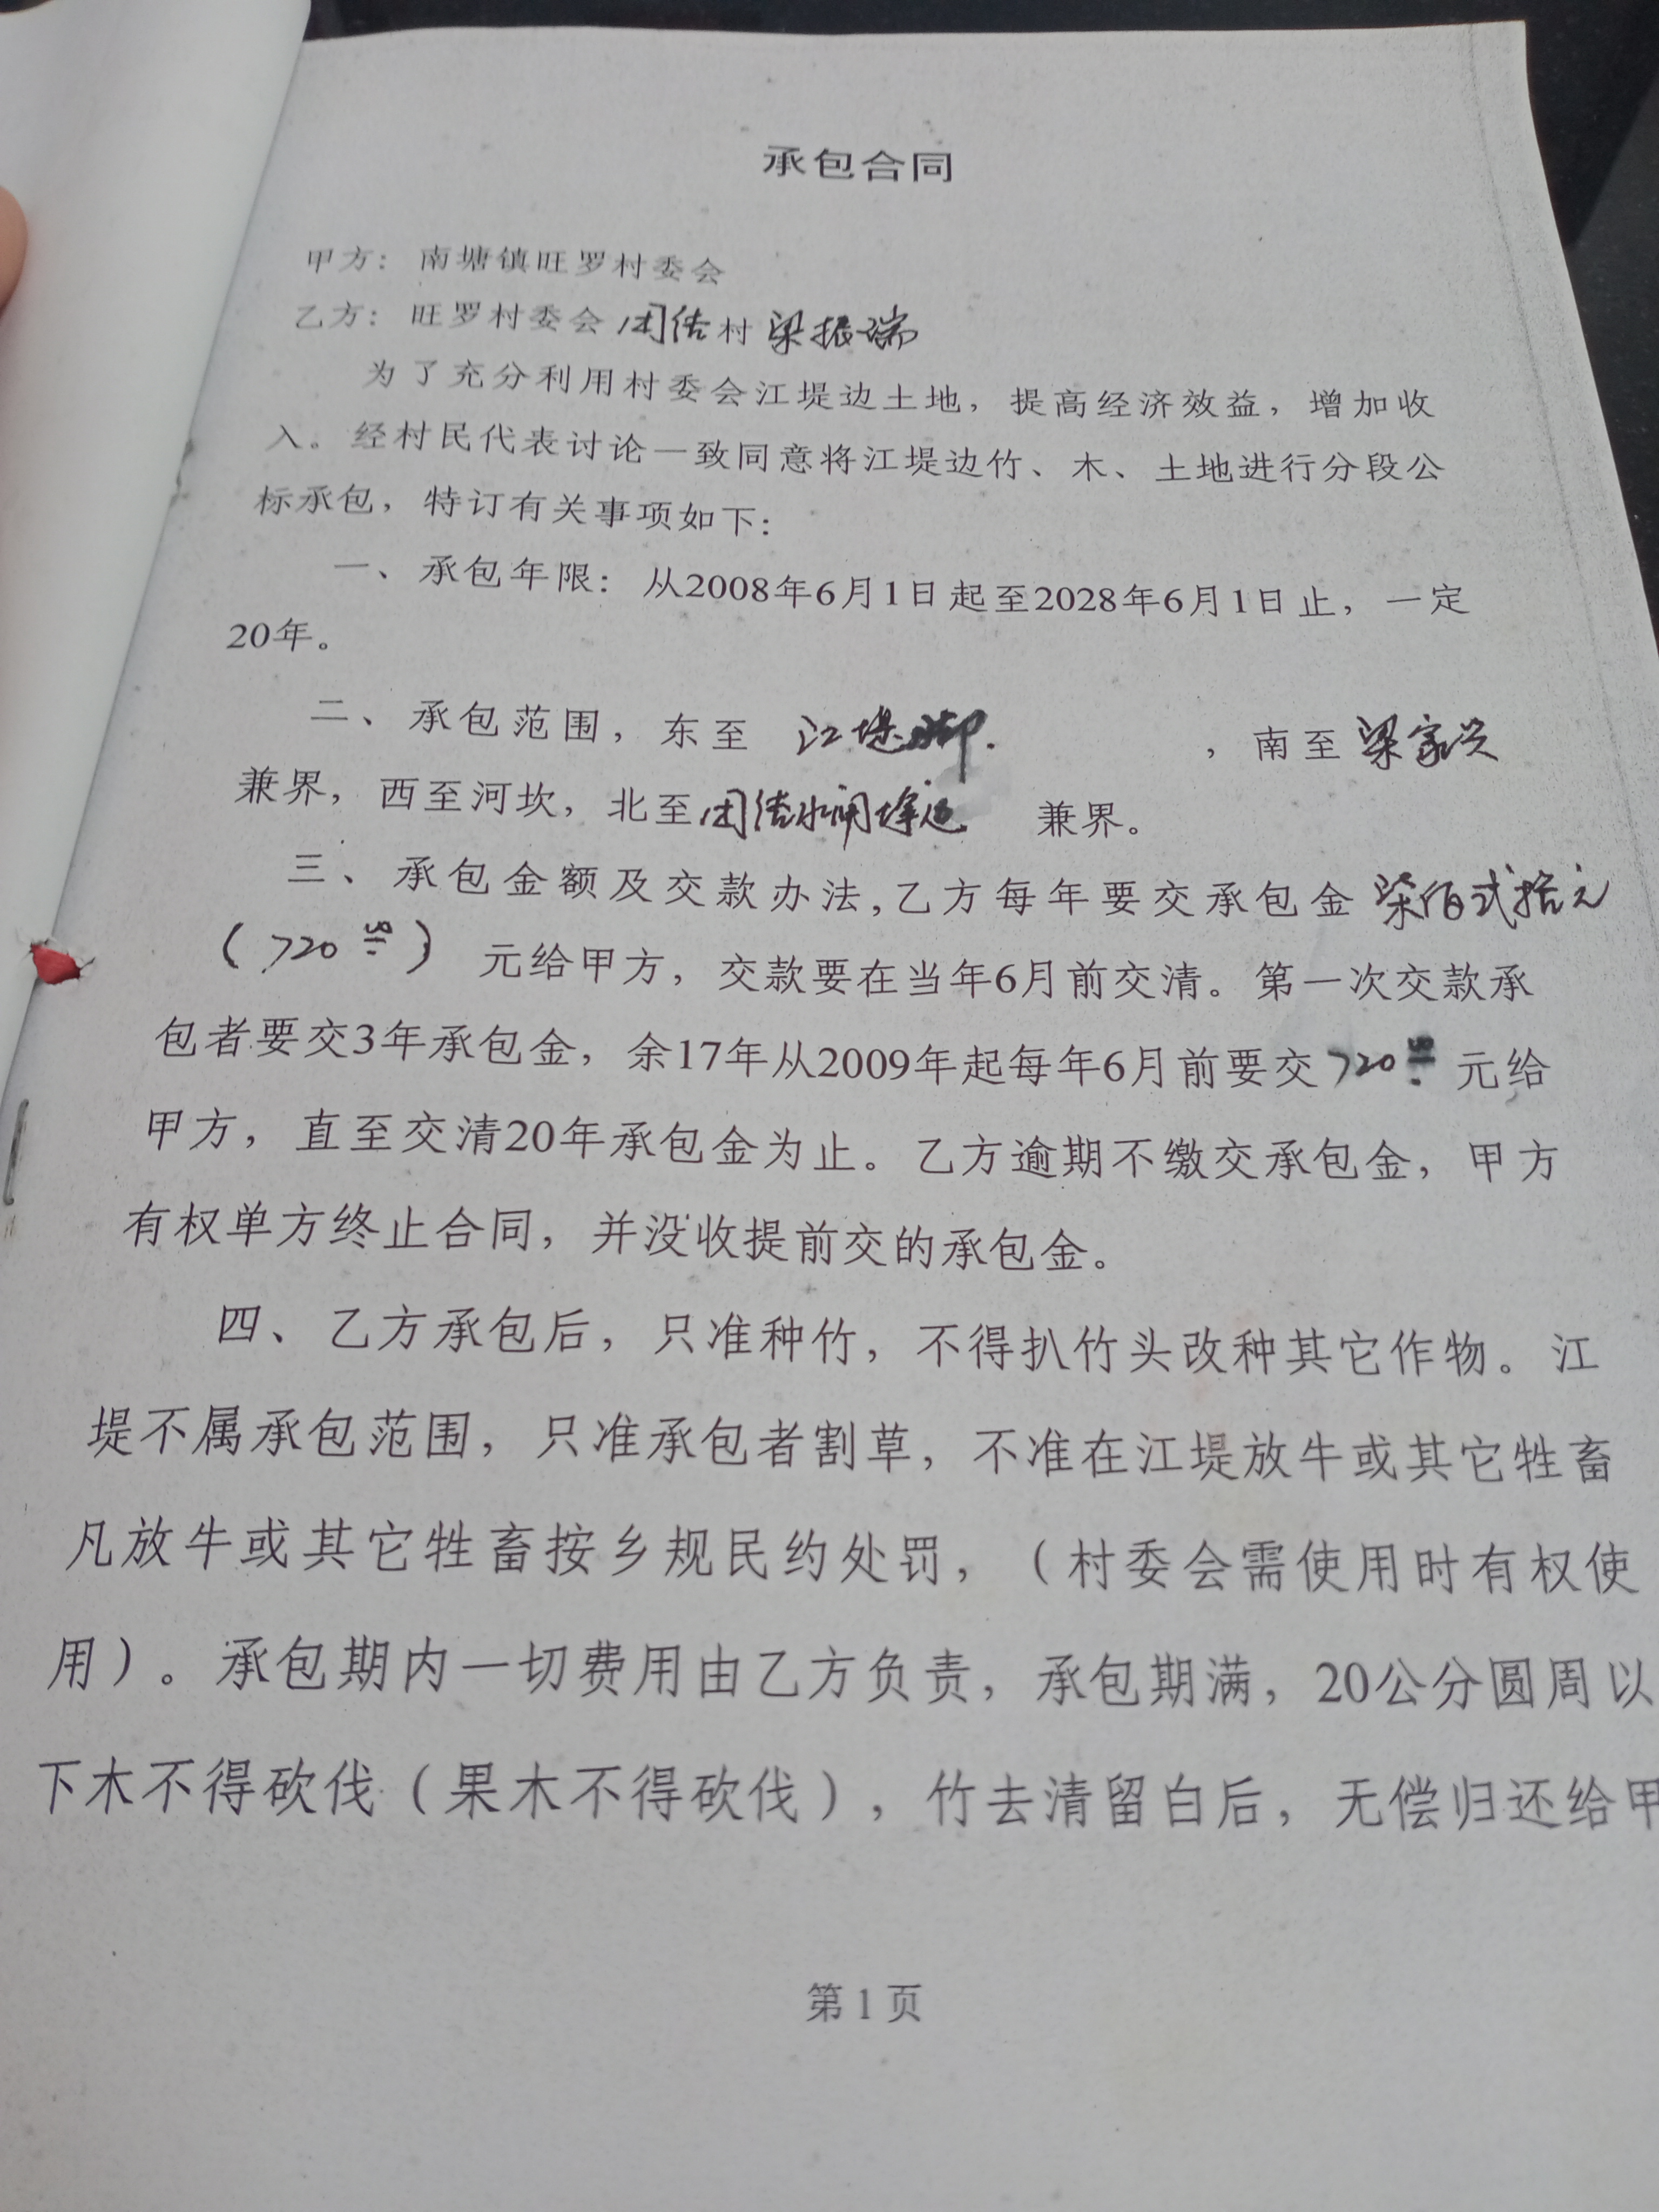 承包合同
甲方：南塘镇旺罗村委会
乙方：旺罗村委会团结村梁振瑞
为了充分利用村委会江堤边土地，提高经济效益，增加收
入。经村民代表讨论一致同意将江堤边竹、木、土地进行分段公
标承包，特订有关事项如下：
一、承包年限：从2008年6月1日起至2028年6月1日止，一定
20年。
二、承包范围，东至 江堤脚. ，南至梁家兴
兼界，西至河坎，北至团结水闸 兼界。
三、承包金额及交款办法,乙方每年要交承包金柒佰弍拾元
（720）元给甲方，交款要在当年6月前交清。第一次交款承
包者要交3年承包金，余17年从2009年起每年6月前要交720元给
甲方，直至交清20年承包金为止。乙方逾期不缴交承包金，甲方
有权单方终止合同，并没收提前交的承包金。
四、乙方承包后，只准种竹，不得扒竹头改种其它作物。江
堤不属承包范围，只准承包者割草，不准在江堤放牛或其它牲畜
凡放牛或其它牲畜按乡规民约处罚，（村委会需使用时有权使
用）。承包期内一切费用由乙方负责，承包期满，20公分圆周以
下木不得砍伐（果木不得砍伐），竹去清留白后，无偿归还给甲
第1页